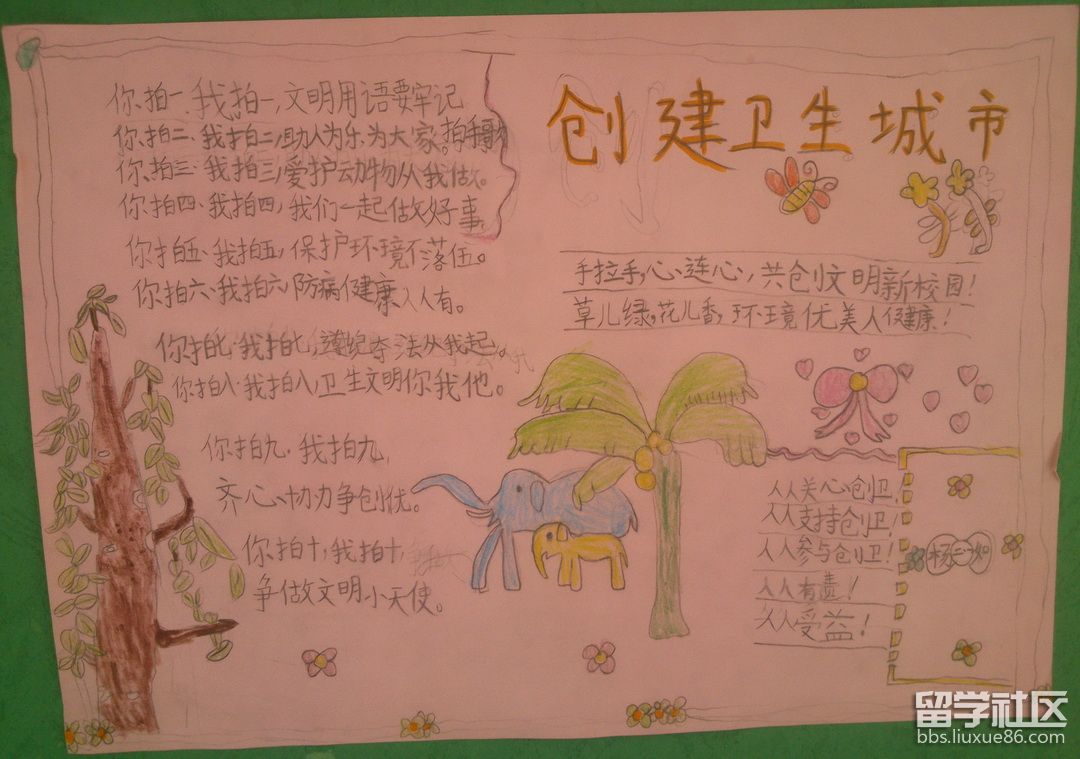 你拍一、我拍一,文明用语要牢记
你拍二、我拍二,助人为乐为大家。
你拍三、我拍三,爱护动物从我做。
你拍四、我拍四,我们一起做好事,
你拍五、我拍五,保护环境不落伍。
你拍六、我拍六,防病健康人人有。
你拍七、我拍七,遵纪守法从我起。
你拍八、我拍八,卫生文明你我他。
你拍九、我拍九,
齐心协力争创优。
你拍十,我拍十,
争做文明小天使。
创建卫生城市
手拉手,心连心,共创文明新校园!
草儿绿,花儿香,环境优美人健康!
人人关心创卫,
人人支持创卫!
人人参与创卫!
人人有责!
人人受益!
留学社区
bbs.liuxue86.com